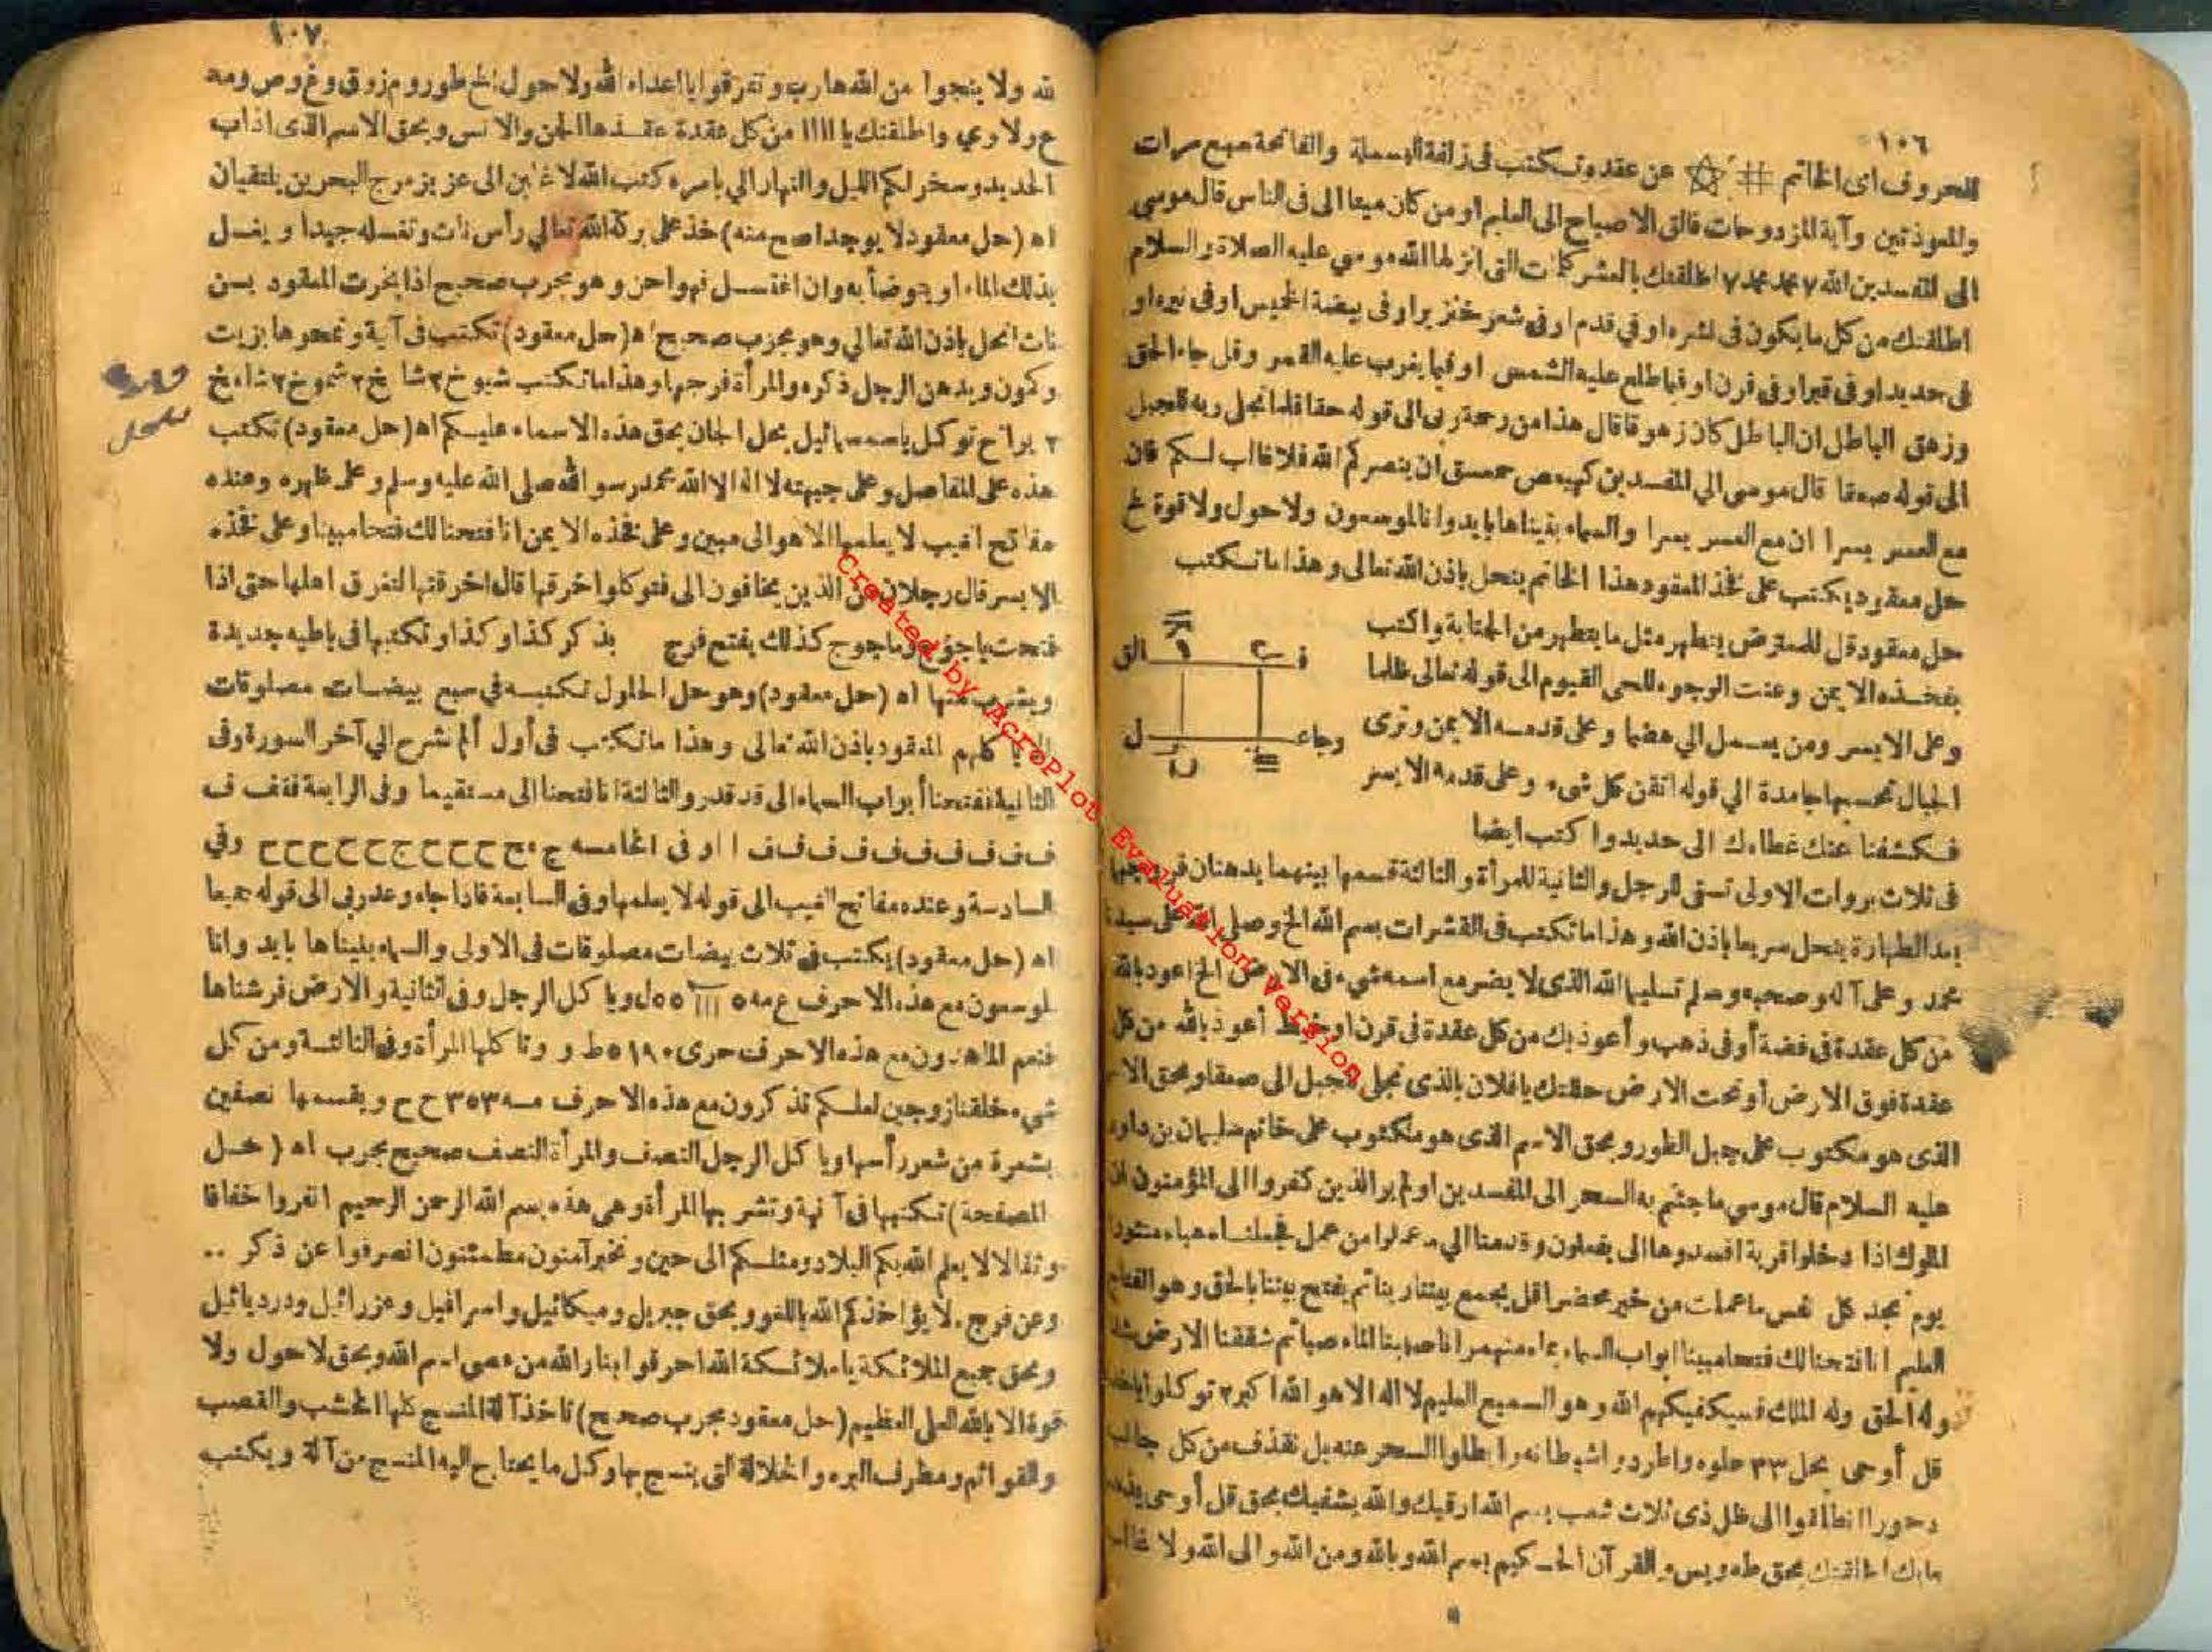 ١٠٦
المعروف اى الخاتم # عن عقده وتكتب فى زلفة البسملة والفاتحة سبع مرات
والمعوذتين وآية المزدوجات فالق الاصباح الى العليم اومن كان ميتا الى فى الناس قال موسى
الى المفسدين الله ٧ محمد محمد ٧ اطلقتك بالعشر كلمات التى انزلها الله موسى عليه الصلاة والسلام
اطلقتك من كل ما يكون فى نشره او فى قدم او فى شعر خنزير او فى بيضة الخميس او فى نيره او
فى حديد او فى قبر او فى قرن او فيما طلع عليه الشمس او فيما يغرب عليه القمر وقل جاء الحق
وزهق الباطل ان الباطل كان زهوقا قال هذا من رحمة ربى الى قوله حقا فلما تجلى ربه للجبل
الى قوله صعقا قال موسى الي المفسدين كهيعص حمعسق ان ينصركم الله فلا غالب لكم فان
مع العسر يسرا ان مع العسر يسرا والسماء بنيناها بايد وانا لموسعون ولا حول ولا قوة الخ
حل معقود يكتب على فخذ المعقود هذا الخاتم ينحل باذن الله تعالى وهذا ما تكتب
حل معقود قل للمعترض يتطهر مثل ما يتطهر من الجنابة واكتب
بفخذه الايمن وعنت الوجوه للحى القيوم الى قوله تعالى ظلما
وعلى الايسر ومن يعمل الي هضما وعلى قدمه الايمن وترى
الجبال تحسبها جامدة الي قوله اتقن كل شىء وعلى قدمه الايسر
فكشفنا عنك غطاءك الى حديد واكتب ايضا
فى ثلاث بروات الاولى تسقى للرجل والثانية للمرأة والثالثة قسمها بينهما يدهنان فروجهما
بعد الطهارة ينحل سريعا باذن الله وهذا ما تكتب فى القشرات بسم الله الخ وصلى الله على سيدنا
محمد وعلى آله وصحبه وسلم تسليما الله الذى لا يضر مع اسمه شىء فى الارض الخ اعوذ بالله
من كل عقدة فى فضة أو فى ذهب وأعوذ بك من كل عقدة فى قرن او خيط أعوذ بالله من كل
عقدة فوق الارض أو تحت الارض حللتك يا فلان بالذى تجلى للجبل الى صعقا وبحق الاسم
الذى هو مكتوب على جبل الطور وبحق الاسم الذى هو مكتوب على خاتم سليمان بن داود
عليه السلام قال موسى ما جئتم به السحر الى المفسدين اولم ير الذين كفروا الى المؤمنون ان
الملوك اذا دخلوا قرية افسدوها الى يفعلون وقدمنا الي ما عملوا من عمل فجعلناه هباء منثورا
يوم تجد كل نفس ما عملت من خير محضرا قل يجمع بيننا ربنا ثم يفتح بيننا بالحق وهو الفتاح
العليم انا فتحنا لك فتحا مبينا ابواب السماء بماء منهمر انا صببنا الماء صبا ثم شققنا الارض شقا
وله الحق وله الملك فسيكفيكهم الله وهو السميع العليم لا اله الا هو الله اكبر ٣ توكلوا
قل أوحى بحل ٣٣ حلوه واطردوا شيطانه وابطلوا السحر عنه بل نقذف من كل جانب
دحورا انطلقوا الى ظل ذى ثلاث شعب بسم الله ارقيك والله يشفيك بحق قل أوحى
ما بك اطلقتك بحق طه ويس والقرآن الحكيم بسم الله وبالله ومن الله والى الله ولا غالب
١٠٧
لله ولا ينجوا من الله هارب وتفرقوا يا اعداء الله ولا حول الخ طور وم زوق وغ وص ومه
ع ولا وي واطلقتك يا ١١١١ من كل عقدة عقدها الجن والانس وبحق الاسم الذى اذاب
الحديد وسخر لكم الليل والنهار الي بامره كتب الله لاغلبن الى عزيز مرج البحرين يلتقيان
اه (حل معقود لا يوجد اصح منه) خذ على بركة الله تعالي رأس نات وتغسله جيدا ويغسل
بذلك الماء او يتوضأ به وان اغتسل فهو احن وهو مجرب صحيح اذا بخرت المعقود بسن
نات انحل باذن الله تعالي وهو مجرب صحيح اه (حل معقود) تكتب فى آية وتمحوها بزيت
وكون ويدهن الرجل ذكره والمرأة فرجها وهذا ما تكتب شيوخ ٢ شا خ ٢ شموخ ٢ شاء خ
٢ براخ توكل يا سمسمائيل بحل الجان بحق هذه الاسماء عليكم اه (حل معقود) تكتب
هذه على المفاصل وعلى جبهته لا اله الا الله محمد رسو الله صلى الله عليه وسلم وعلى ظهره وعنده
مفاتح الغيب لا يعلمها الا هو الى مبين وعلى فخذه الايمن انا فتحنا لك فتحا مبينا وعلى فخذه
الايسر قال رجلان من الذين يخافون الى فتوكلوا اخرقها قال اخرقتها لتغرق اهلها حتى اذا
فتحت ياجوج وماجوج كذلك يفتح فرج بذكر كذا وكذا وتكتبها فى باطيه جديدة
ويشرب منها اه (حل معقود) وهو حل الحلول تكتبه في سبع بيضات مصلوقات
يأكلهم المعقود باذن الله تعالى وهذا ما تكتب فى أول ألم نشرح الي آخر السورة وفى
الثانية ففتحنا أبواب السماء الى قد قدر والثالثة انا فتحنا الى مستقيما وفى الرابعة ففف ف
ف ف ف ف ف ف ف ف ف ف ا او فى الخامسه ج ح ح ح ح ح ج ح ح ح ح ح وفي
السادسة وعنده مفاتح الغيب الى قوله لا يعلمها وفى السابعة فاذا جاء وعد ربى الى قوله جميعا
اه (حل معقود) يكتب فى ثلاث بيضات مصلوقات فى الاولى والسماء بنيناها بايد وانا
لموسعون مع هذه الاحرف ع مه ٥ ااا ٥٥ ل ويا كل الرجل وفى الثانية والارض فرشناها
فنعم الماهدون مع هذه الاحرف حرى ١٩٠ ٥ ط و وتا كلها المرأة وفى الثالثة ومن كل
شيء خلقنا زوجين لعلكم تذكرون مع هذه الاحرف مسه ٣٥٣ ح ح ويقسمها نصفين
بشعرة من شعر رأسها ويا كل الرجل النصف والمرأة النصف صحيح مجرب اه (حل
المصفحة) تكتبها فى آنية وتشربها المرأة وهي هذه بسم الله الرحمن الرحيم انفروا خفافا
وثقالا لا يعلم الله بكم البلاد ومثلكم الى حين ونخبر آمنون مطمئنون انصرفوا عن ذكر ..
وعن فرج . لا يؤاخذكم الله باللغو وبحق جبريل وميكائيل واسرافيل وعزرائيل ودرديائيل
وبحق جميع الملائكة يا ملائكة الله احرقوا بنار الله من عصى اسم الله وبحق لا حول ولا
قوة الا بالله العلى العظيم (حل معقود مجرب صحيح) تاخذ آلة المنسج كلها الخشب والقصب
والقوائم ومطرف البره والخلالة التى ينسج بها وكل ما يحتاج اليه المنسج من آلة ويكتب
Created by AcroPlot Evaluation Version